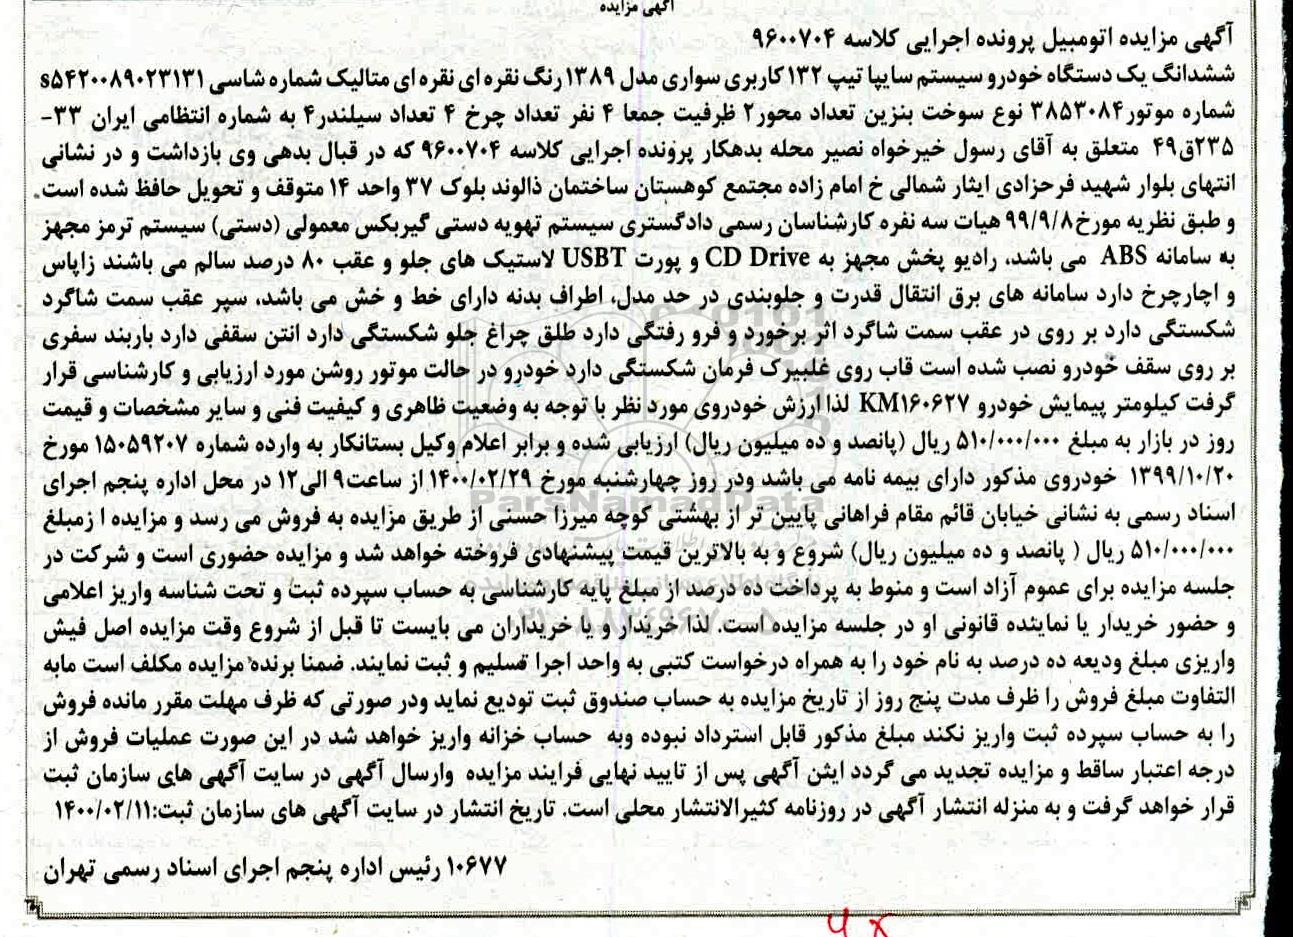 آگهی مزایده
آگهی مزایده اتومبیل پرونده اجرایی کلاسه ۹۶۰۰۷۰۴
ششدانگ یک دستگاه خودرو سیستم سایپا تیپ ۱۳۲ کاربری سواری مدل ۱۳۸۹ رنگ نقره ای نقره ای متالیک شماره شاسی s۵۴۲۰۰۸۹۰۲۳۱۳۱
شماره موتور۳۸۵۳۰۸۴ نوع سوخت بنزین تعداد محور۲ ظرفیت جمعا ۴ نفر تعداد چرخ ۴ تعداد سیلندر۴ به شماره انتظامی ایران ۳۳-
۲۳۵ق۴۹ متعلق به آقای رسول خیرخواه نصیر محله بدهکار پرونده اجرایی کلاسه ۹۶۰۰۷۰۴ که در قبال بدهی وی بازداشت و در نشانی
انتهای بلوار شهید فرحزادی ایثار شمالی خ امام زاده مجتمع کوهستان ساختمان ذالوند بلوک ۳۷ واحد ۱۴ متوقف و تحویل حافظ شده است.
و طبق نظریه مورخ۹۹/۹/۸ هیات سه نفره کارشناسان رسمی دادگستری سیستم تهویه دستی گیربکس معمولی (دستی) سیستم ترمز مجهز
به سامانه ABS می باشد، رادیو پخش مجهز به CD Drive و پورت USBT لاستیک های جلو و عقب ۸۰ درصد سالم می باشند زاپاس
و اچارچرخ دارد سامانه های برق انتقال قدرت و جلوبندی در حد مدل، اطراف بدنه دارای خط و خش می باشد، سپر عقب سمت شاگرد
شکستگی دارد بر روی در عقب سمت شاگرد اثر برخورد و فرو رفتگی دارد طلق چراغ جلو شکستگی دارد انتن سقفی دارد باربند سفری
بر روی سقف خودرو نصب شده است قاب روی غلبیرک فرمان شکستگی دارد خودرو در حالت موتور روشن مورد ارزیابی و کارشناسی قرار
گرفت کیلومتر پیمایش خودرو KM۱۶۰۶۲۷ لذا ارزش خودروی مورد نظر با توجه به وضعیت ظاهری و کیفیت فنی و سایر مشخصات و قیمت
روز در بازار به مبلغ ۵۱۰/۰۰۰/۰۰۰ ریال (پانصد و ده میلیون ریال) ارزیابی شده و برابر اعلام وکیل بستانکار به وارده شماره ۱۵۰۵۹۲۰۷ مورخ
۱۳۹۹/۱۰/۲۰ خودروی مذکور دارای بیمه نامه می باشد ودر روز چهارشنبه مورخ ۱۴۰۰/۰۲/۲۹ از ساعت۹ الی۱۲ در محل اداره پنجم اجرای
اسناد رسمی به نشانی خیابان قائم مقام فراهانی پایین تر از بهشتی کوچه میرزا حسنی از طریق مزایده به فروش می رسد و مزایده ا زمبلغ
۵۱۰/۰۰۰/۰۰۰ ریال ( پانصد و ده میلیون ریال) شروع و به بالاترین قیمت پیشنهادی فروخته خواهد شد و مزایده حضوری است و شرکت در
جلسه مزایده برای عموم آزاد است و منوط به پرداخت ده درصد از مبلغ پایه کارشناسی به حساب سپرده ثبت و تحت شناسه واریز اعلامی
و حضور خریدار یا نماینده قانونی او در جلسه مزایده است. لذا خریدار و یا خریداران می بایست تا قبل از شروع وقت مزایده اصل فیش
واریزی مبلغ ودیعه ده درصد به نام خود را به همراه درخواست کتبی به واحد اجرا تسلیم و ثبت نمایند. ضمنا برنده مزایده مکلف است مابه
التفاوت مبلغ فروش را ظرف مدت پنج روز از تاریخ مزایده به حساب صندوق ثبت تودیع نماید ودر صورتی که ظرف مهلت مقرر مانده فروش
را به حساب سپرده ثبت واریز نکند مبلغ مذکور قابل استرداد نبوده وبه حساب خزانه واریز خواهد شد در این صورت عملیات فروش از
درجه اعتبار ساقط و مزایده تجدید می گردد ایثن آگهی پس از تایید نهایی فرایند مزایده وارسال آگهی در سایت آگهی های سازمان ثبت
قرار خواهد گرفت و به منزله انتشار آگهی در روزنامه کثیرالانتشار محلی است. تاریخ انتشار در سایت آگهی های سازمان ثبت:۱۴۰۰/۰۲/۱۱
۱۰۶۷۷ رئیس اداره پنجم اجرای اسناد رسمی تهران
ParsNamadData